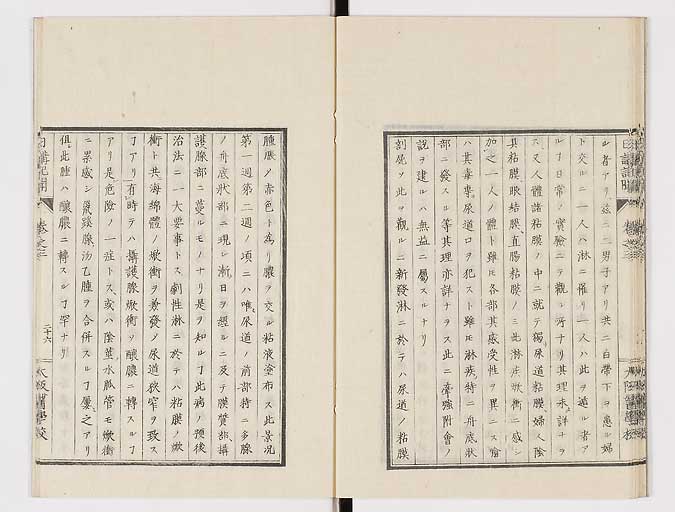 ル者アリ茲ニ二男子アリ共ニ白帯下ヲ患ル婦
ト交ルニ一人ハ淋ニ罹リ一人ハ此ヲ遁ル者ア
ルヿ日常ノ實驗ニテ觀ル所ナリ其理未詳ナラ
ス又人體諸粘膜ノ中ニ就テ獨尿道粘膜婦人陰
具粘膜眼結膜直腸粘膜ノミ此潜㽷焮衝ニ感シ
加之一人ノ體ト雖𪜈各部其感受性ヲ異ニス喩
ハ其毒專尿道口ヲ犯スト雖𪜈淋疾特ニ舟底狀
部ニ發スル等其理亦詳ナラス此ニ牽強附會ノ
説ヲ建ルハ無益ニ屬スルナリ
剖屍ノ此ヲ觀ルニ新發淋ニ於テハ尿道ノ粘膜
腫脹ノ赤色ト為リ膿ヲ交ル粘液塗布ス此景况
第一週第二週ノ項ニハ唯尿道ノ前部特ニ多腺
ノ舟底狀部ニ現シ漸日ヲ經ルニ及テ膜質部攝
護腺部ニ蔓ルモノナリ是ヲ知ルヿ此病ノ預後
治法ニ一大要事トス劇性淋ニ於テハ粘膜ノ焮
衝ト共ニ海綿體ノ焮衝ヲ兼發ノ尿道狹窄ヲ致ス
ヿアリ有時テハ攝護腺焮衝ヲ釀膿ニ轉スルヿ
アリ是危險ノ一症トス或ハ陰莖水脈管モ焮衝
ニ罣感シ鼠蹊腺汤乙腫ヲ合併スルヿ屢之アリ
但此腫ハ釀膿ニ轉スルヿ罕ナリ
日講記聞
卷之三
二十六
大阪醫學校